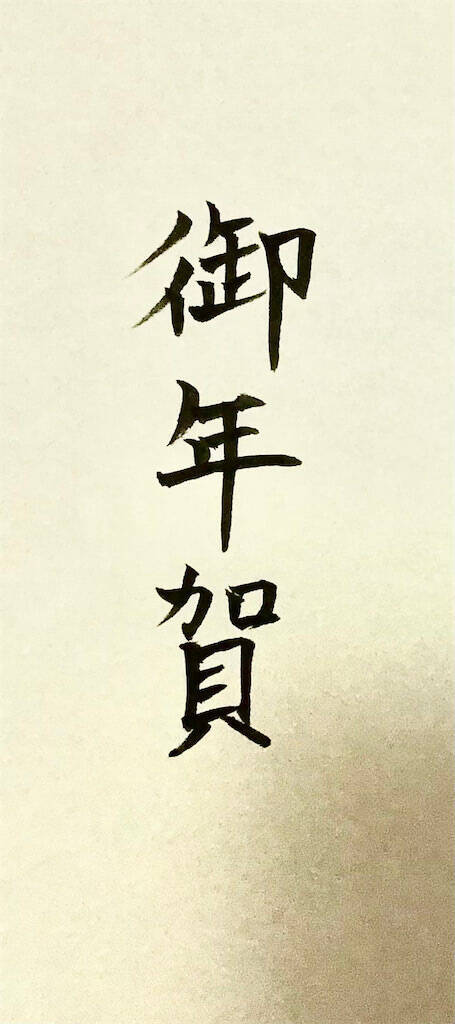 御年賀